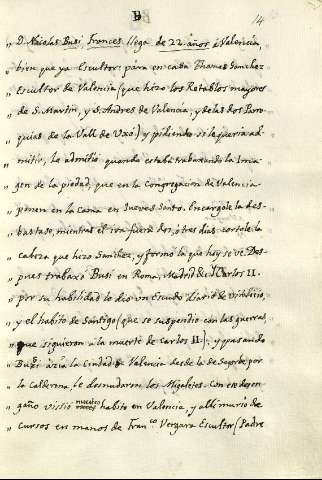 B
14
„ D. Nicolas Busi Frances llega de 22 años à Valencia,
„ bien que ya Escultor: pára en casa Thomas Sanchez
„ Escultor de Valencia (que hizo los Retablos mayores
„ de S. Martin, y S. Andres de Valencia, y de las dos Parro
„ quias de la Vall de Uxó) y pidiendo si le queria ad
„ mitir, le admitió quando estaba trabaxando la Ima
„ gen de la piedad, que en la Congregacion de Valencia
„ ponen en la Cama en Jueves Santo. Encargole la des-
„ bastase, mientras el iva fuera dos, ó tres dias: cortole la
„ cabeza que hizo Sanchez, y formó la que hoy se ve. Des-
„ pues trabaxó Busi en Roma, Madrid &c. Carlos II.
„ por su habilidad le dio un Escudo diario de vitalicio,
„ y el habito de Santiago (que se suspendió con las guerras
„ que siguieron à la muerte de Carlos II.), y pasando
„ Busi àzia la Ciudad de Valencia desde la de Segorbe por
„ la Calderona, le desnudaron los Migaletes. Con este desen-
„ gaño vistió nuestro habito en Valencia, y alli murió de
„ cursos en manos de Fran.co Vergara Escultor (Padre